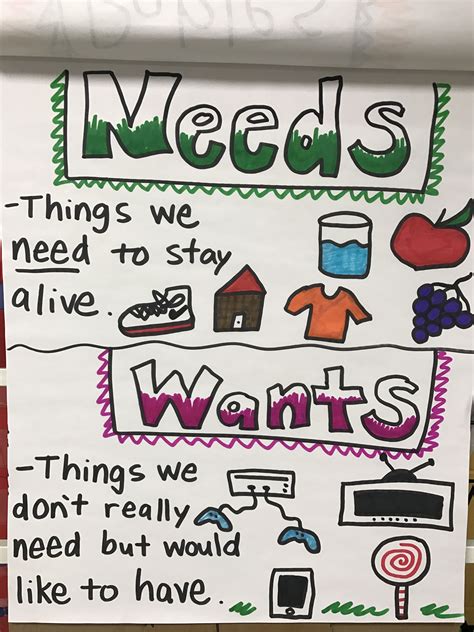 Needs
-Things we
need to stay
alive.
Wants
-Things we
don't really
need but would
like to have.